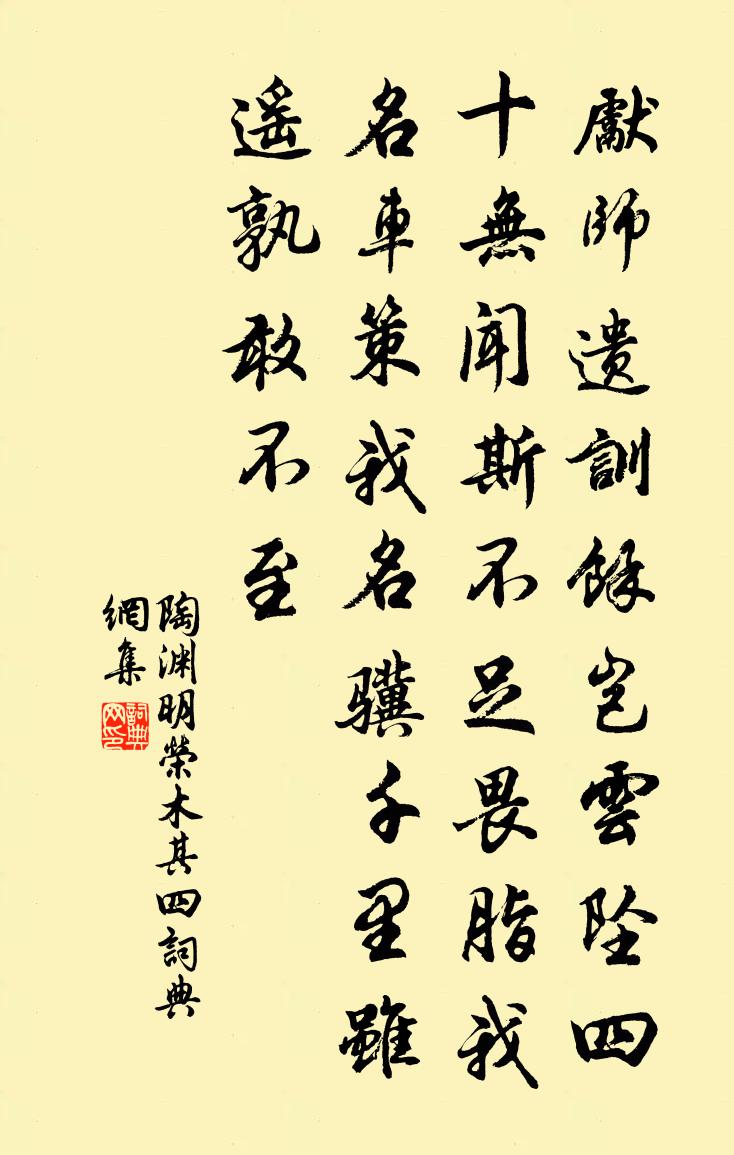 獻師遺訓餘豈雲墜四
十無聞斯不足畏脂我
名車策我名驥千里雖
遥孰敢不至
陶渊明榮木其四詞典
網集
詞典
网印